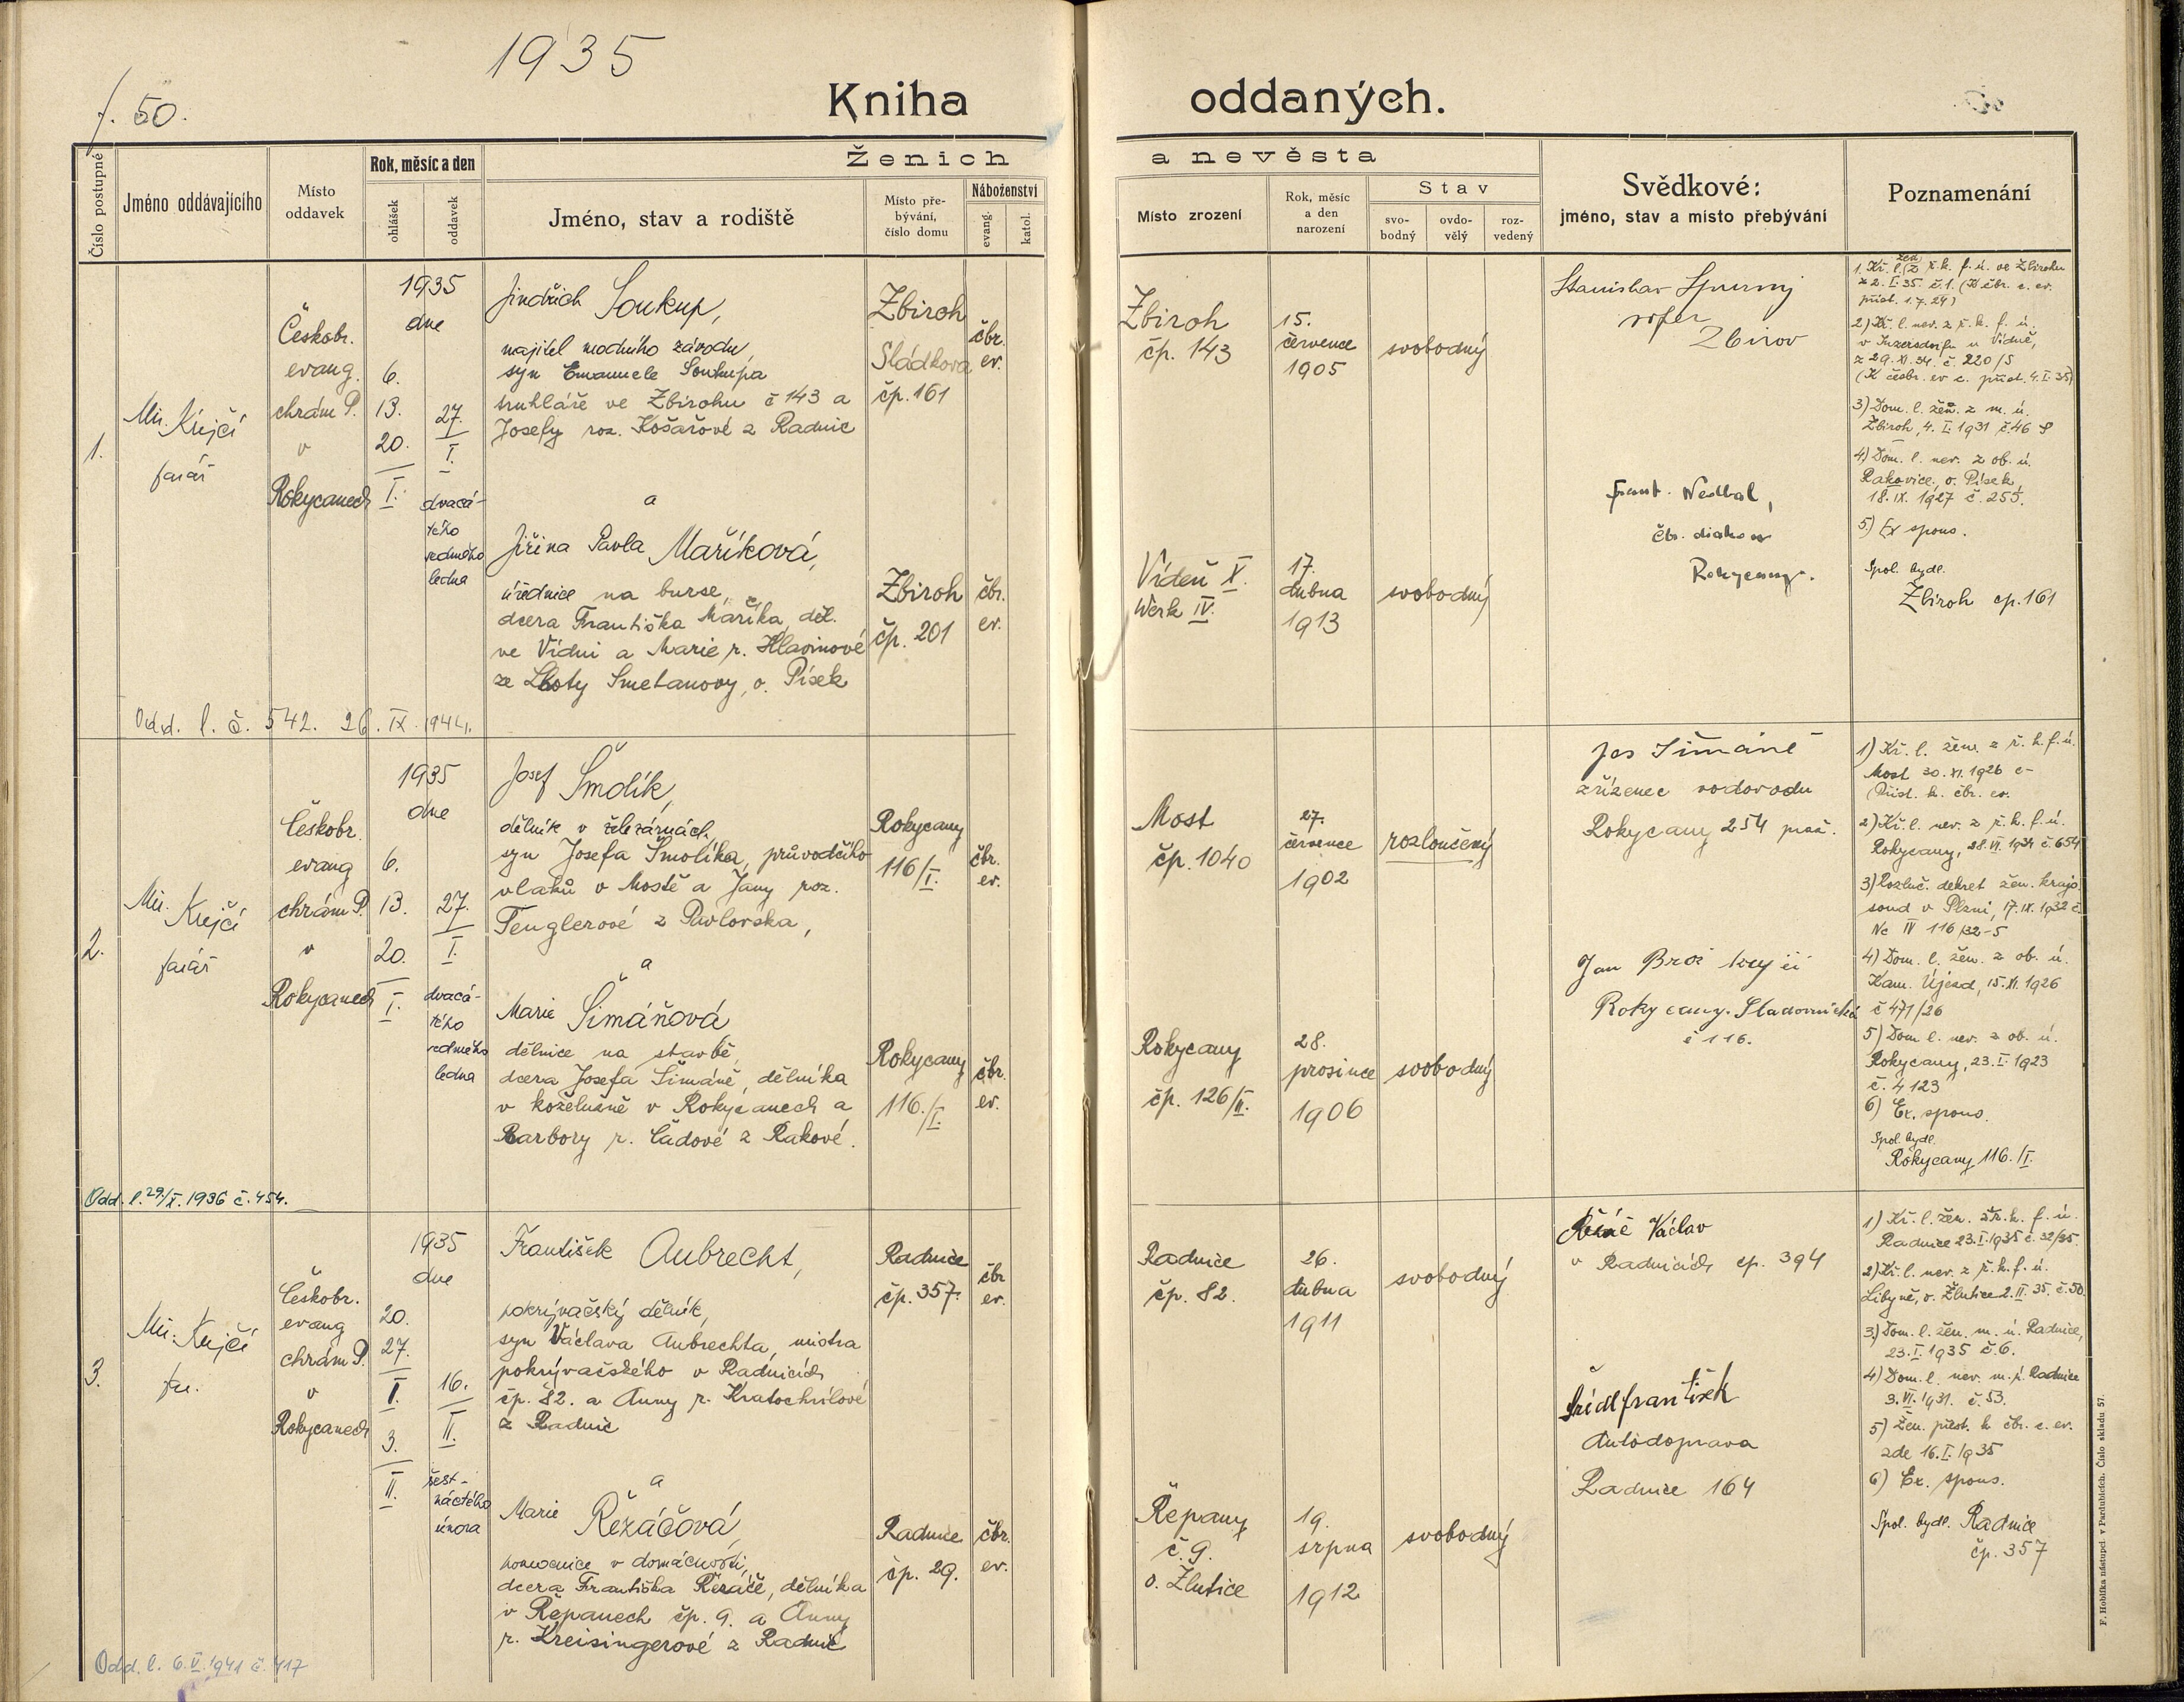 1935
f. 50.
Kniha oddaných.
Číslo postupné
Jméno oddávajícího
Místo
oddavek
Rok, měsíc a den
ohlášek
oddavek
Ženich a nevěsta
Jméno, stav a rodiště
Místo pře-
bývání,
číslo domu
Náboženství
evang.
katol.
Místo zrození
Rok, měsíc
a den
narození
Stav
svo-
bodný
ovdo-
vělý
roz-
vedený
Svědkové:
jméno, stav a místo přebývání
Poznamenání
1.
Mir. Krejčí
farář
Českobr.
evang.
chrám P.
v
Rokycanech
1935
dne
6.
13.
20.
I.
27.
I.
dvacá-
tého
sedmého
ledna
Jindřich Soukup,
majitel modního závodu,
syn Emanuele Soukupa
truhláře ve Zbirohu č 143 a
Josefy roz. Košařové z Radnic
a
Jiřina Pavla Maříková,
úřednice na burse,
dcera Františka Maříka, děl.
ve Vídni a Marie r. Hlavinové
ze Lhoty Smetanovy, o. Písek
Zbiroh
Sládkova
čp. 161
čbr.
ev.
Zbiroh
čp. 201
čbr.
ev.
Zbiroh
čp. 143
15.
července
1905
svobodný
Vídeň X.
Werk IV.
17.
dubna
1913
svobodný
Stanislav
Zbirov
Frant. Nedbal,
čbr. diakon
Rokycany.
1. Kř. l. žen z ř. k. f. ú. ve Zbirohu
z 2. I. 35. č. 1. (K čbr. c. ev.
přist. 1. 7. 24)
2) Kř. l. nev. z ř. k. f. ú.
v Inzersdorfu u Vídně,
z 29. XI. 34. č. 220/S
(K česbr. ev c. přist. 4. I. 35)
3) Dom. l. žen. z m. ú.
Zbiroh, 4. I. 1931 č. 46
4) Dom. l. nev. z ob. ú.
Rakovice, o. Písek
18. IX. 1927 č. 255.
5) Ex spons.
Spol. bydl.
Zbiroh čp. 161
Odd. l. č. 542. 26. IX. 1944.
2.
Mir. Krejčí
farář
Českobr.
evang
chrám P.
v
Rokycanech
1935
dne
6.
13.
20.
I.
27.
I.
dvacá-
tého
sedmého
ledna
Josef Šmolík,
dělník v železárnách,
syn Josefa Šmolíka, průvodčího
vlaků v Mostě a Jany roz.
Fenglerové z Pavlovska,
a
Marie Šimáňová
dělnice na stavbě,
dcera Josefa Šimáně, dělníka
v koželužně v Rokycanech a
Barbory r. Čadové z Rakové.
Rokycany
116/I.
čbr.
ev.
Rokycany
116./I.
čbr.
ev.
Most
čp. 1040
27.
července
1902
rozloučený
Rokycany
čp. 126/II.
28.
prosince
1906
svobodný
Jos Šimáně
zřízenec vodovodu
Rokycany 254 praž.
Jan Brož
Rokycany. Sladovnická
č 116.
1) Kř. l. žen. z ř. k. f. ú.
Most 30. XI. 1926 c-
(Přist. k. čbr. ev.
2) Kř. l. nev. z ř. k. f. ú.
Rokycany, 28. VI. 1934 č. 654
3) Rozluč. dekret žen. krajs.
soud v Plzni, 17. IX. 1932 č.
Nc IV 116/32-5
4) Dom. l. žen. z ob. ú.
Kam. Újezd, 15. XI. 1926
č 471/26
5) Dom l. nev. z ob. ú.
Rokycany, 23. I. 1923
č. 4123
6) Ex. spons.
Spol. bydl.
Rokycany 116. /I.
Odd. l. 29/X. 1936 č. 454.
3.
Mir. Krejčí
far.
Českobr.
evang
chrám P.
v
Rokycanech
1935
dne
20.
27.
I.
3.
II.
16.
II.
šest-
náctého
února
František Aubrecht,
pokrývačský dělník,
syn Václava Aubrechta, mistra
pokrývačského v Radnicích
čp. 82. a Anny r. Kratochvílové
z Radnic
a
Marie Řezáčová,
pomocnice v domácnosti,
dcera Františka Řezáče, dělníka
v Řepanech čp. 9. a Anny
r. Kreisingerové z Radnic
Radnice
čp. 357.
čbr
ev.
Radnice
čp. 29.
čbr.
ev.
Radnice
čp. 82.
26.
dubna
1911
svobodný
Řepany
č. 9.
o. Žlutice
19.
srpna
1912
svobodný
Řezáč Václav
v Radnicích čp. 394
Šrédl František
Autodoprava
Radnice 164
1) Kř. l. žen. z ř. k. f. ú.
Radnice 23. I. 1935 č. 32/35.
2) Kř. l. nev. z ř. k. f. ú.
Libyně, o. Žlutice 2. II. 35. č. 50.
3.) Dom. l. žen. m. ú. Radnice,
23. I. 1935 č. 6.
4) Dom. l. nev. m. ú. Radnice
3. VI. 1931. č. 53.
5) Žen. přest. k čbr. c. ev.
zde 16. I. 1935
6) Ex. spons.
Spol. bydl. Radnice
čp. 357
Odd. l. 6. V. 1941 č. 417
F. Hoblíka nástupci v Pardubicích. Číslo skladu 57.